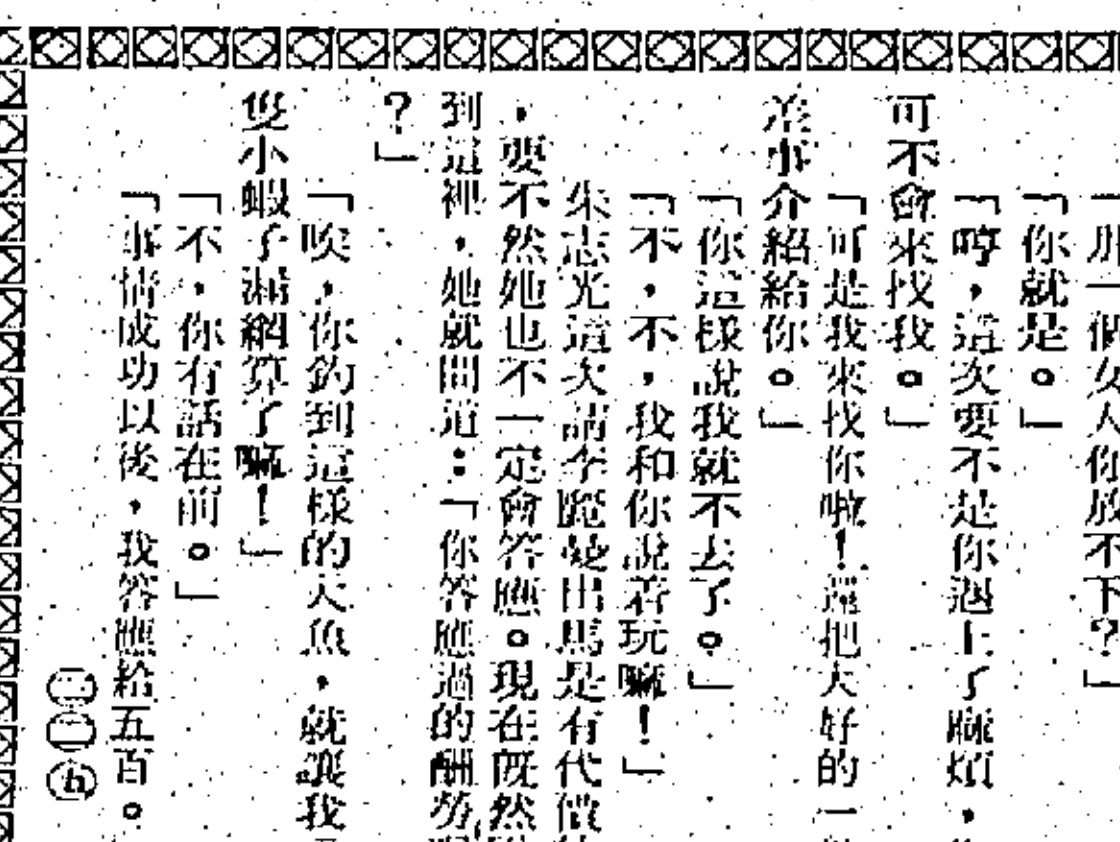 那一個女人你放不下?」
「你就是。」
「哼,這次要不是你遇上了麻煩,
可不會來找我。」
「可是我來找你啦!還把大好的一
差事介紹給你。」
「你這樣說我就不去了。」
「不,不,我和你說着玩嘛!」
朱志光這次請李麗曼出馬是有代價
,要不然她也不一定會答應。現在既然
到這裡,她就問道:「你答應過的酬勞
?」
「唉,你釣到這樣的大魚,就讓我
隻小蝦子漏網算了嘛!」
「不,你有話在前。」
「事情成功以後,我答應給五百。
二二九